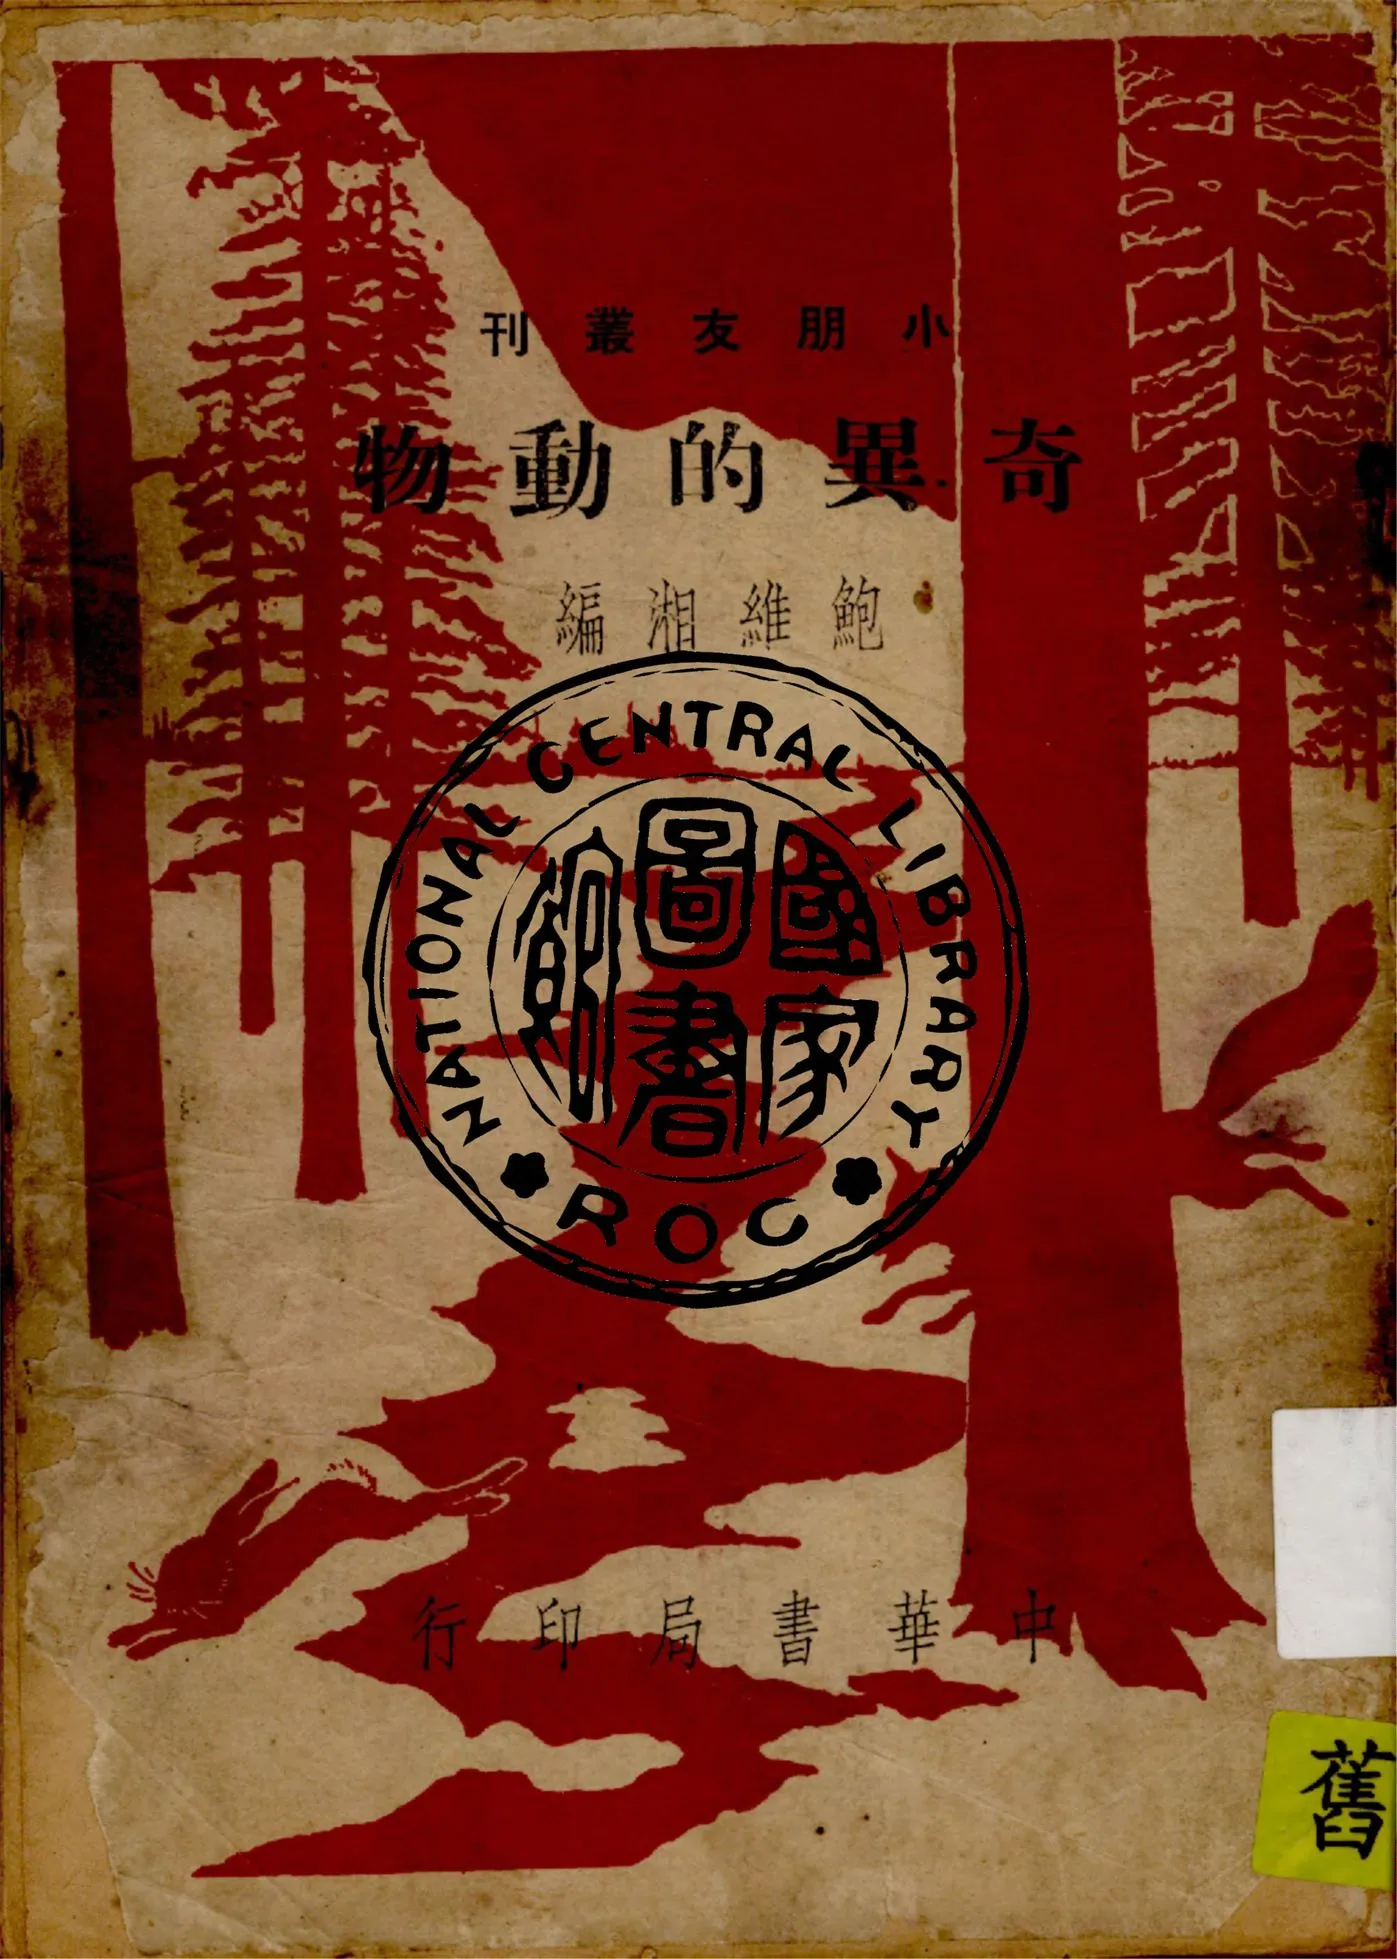 小朋友叢刊
奇異的動物
鮑維湘編
NATIONAL CENTRAL LIBRARY
國家圖書館
ROC
中華書局印行
舊